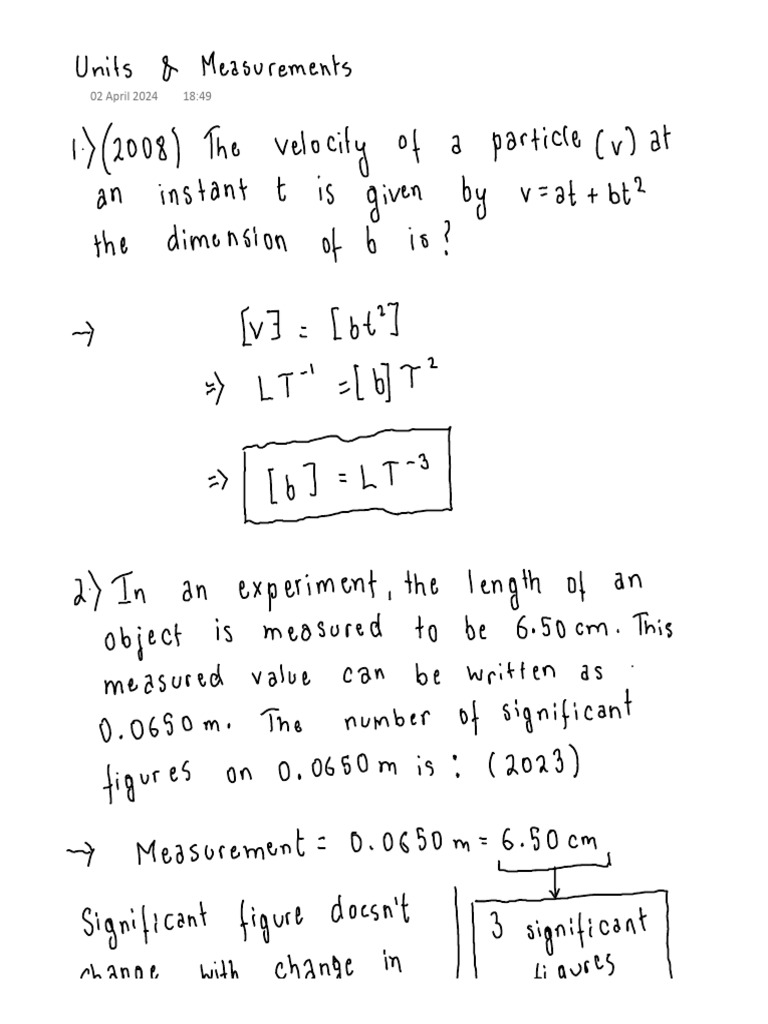 Units & Measurements
02 April 2024 18:49
1.) (2008) The velocity of a particle (v) at
an instant t is given by v = at + bt²
the dimension of b is?
→ [v] = [bt²]
⇒ LT⁻¹ = [b] T²
⇒ [b] = LT⁻³
2.) In an experiment, the length of an
object is measured to be 6.50 cm. This
measured value can be written as
0.0650 m. The number of significant
figures on 0.0650 m is : (2023)
→ Measurement = 0.0650 m = 6.50 cm
Significant figure doesn't
change with change in
3 significant
figures